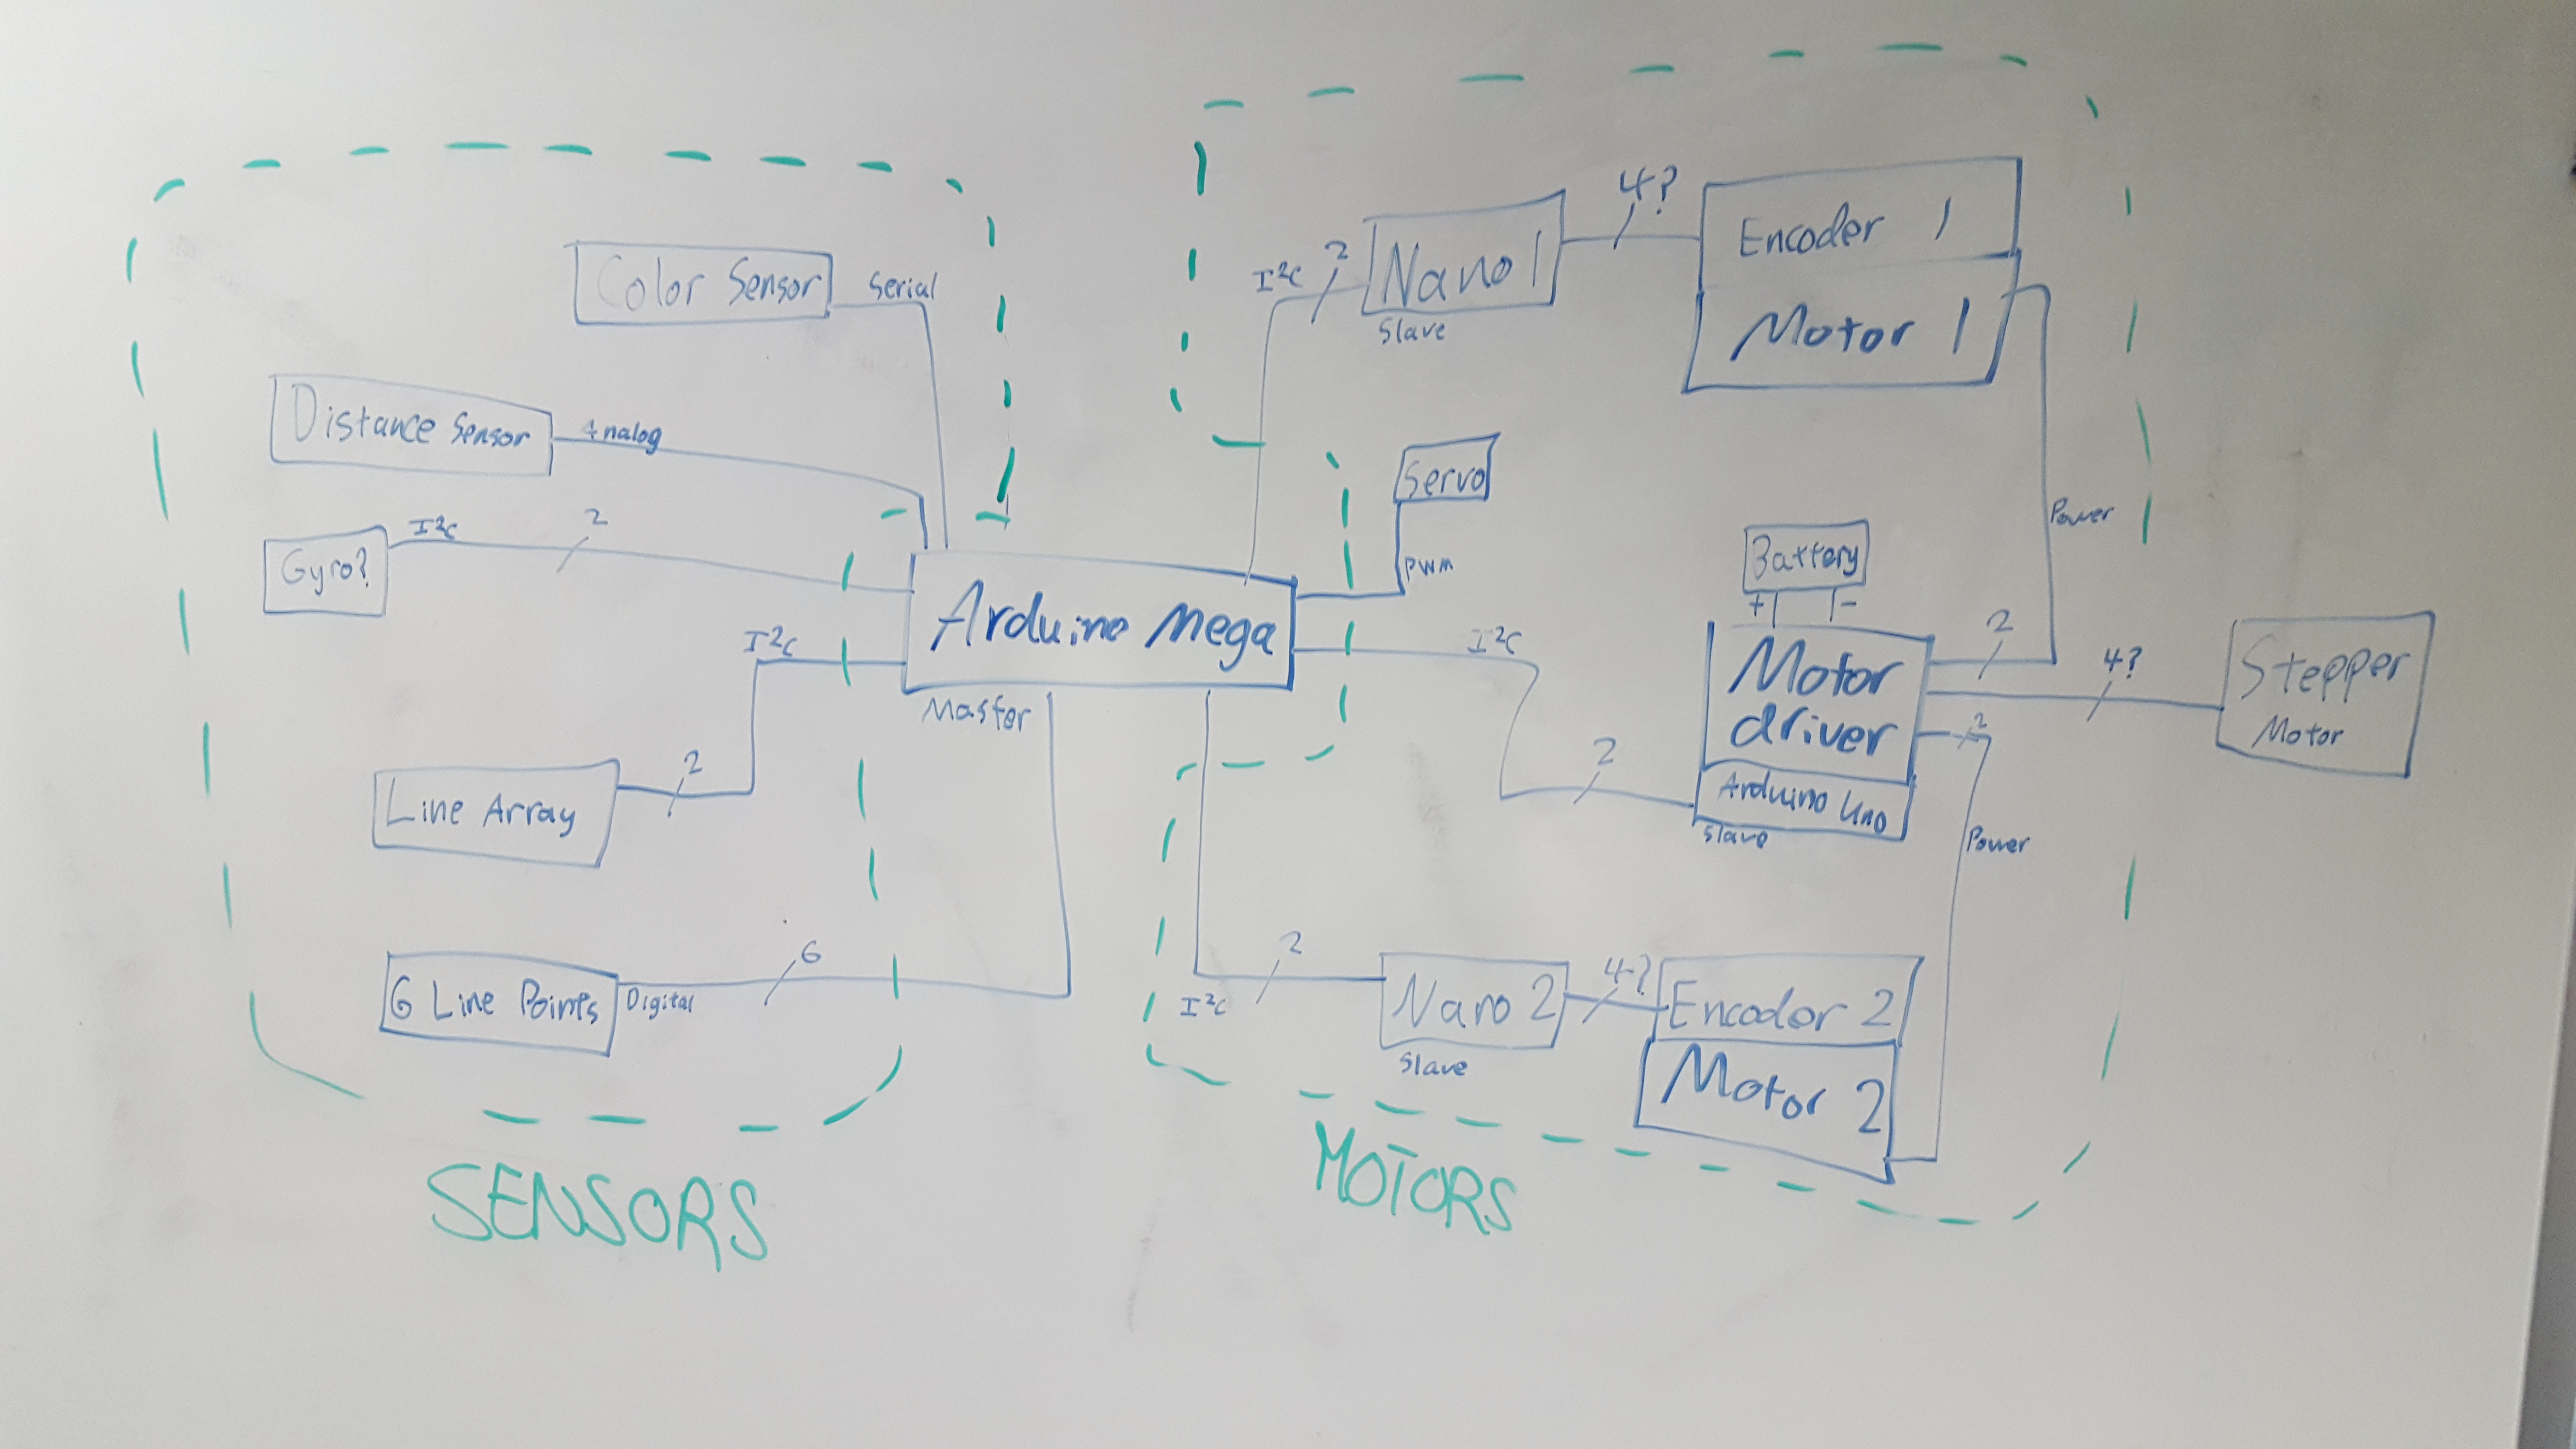 Color Sensor
Serial
Distance Sensor
Analog
Gyro?
I²C
2
Line Array
2
I²C
6 Line Points
Digital
6
SENSORS
Arduino Mega
Master
I²C
2
Nano 1
Slave
4?
Encoder 1
Motor 1
Power
Servo
PWM
I²C
2
Battery
+ -
Motor
driver
Arduino Uno
Slave
2
4?
2
Stepper
Motor
Power
I²C
2
Nano 2
Slave
4?
Encoder 2
Motor 2
MOTORS